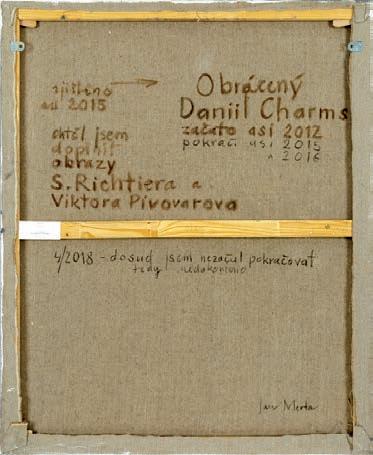 zjištěno
až 2015
chtěl jsem
doplnit
obrazy
S. Richtiera a
Viktora Pivovarova
Obrácený
Daniil Charms
začato asi 2012
pokrač. asi 2015
a 2016
4/2018 - dosud jsem nezačal pokračovat
tedy nedokončeno
Jan Merta